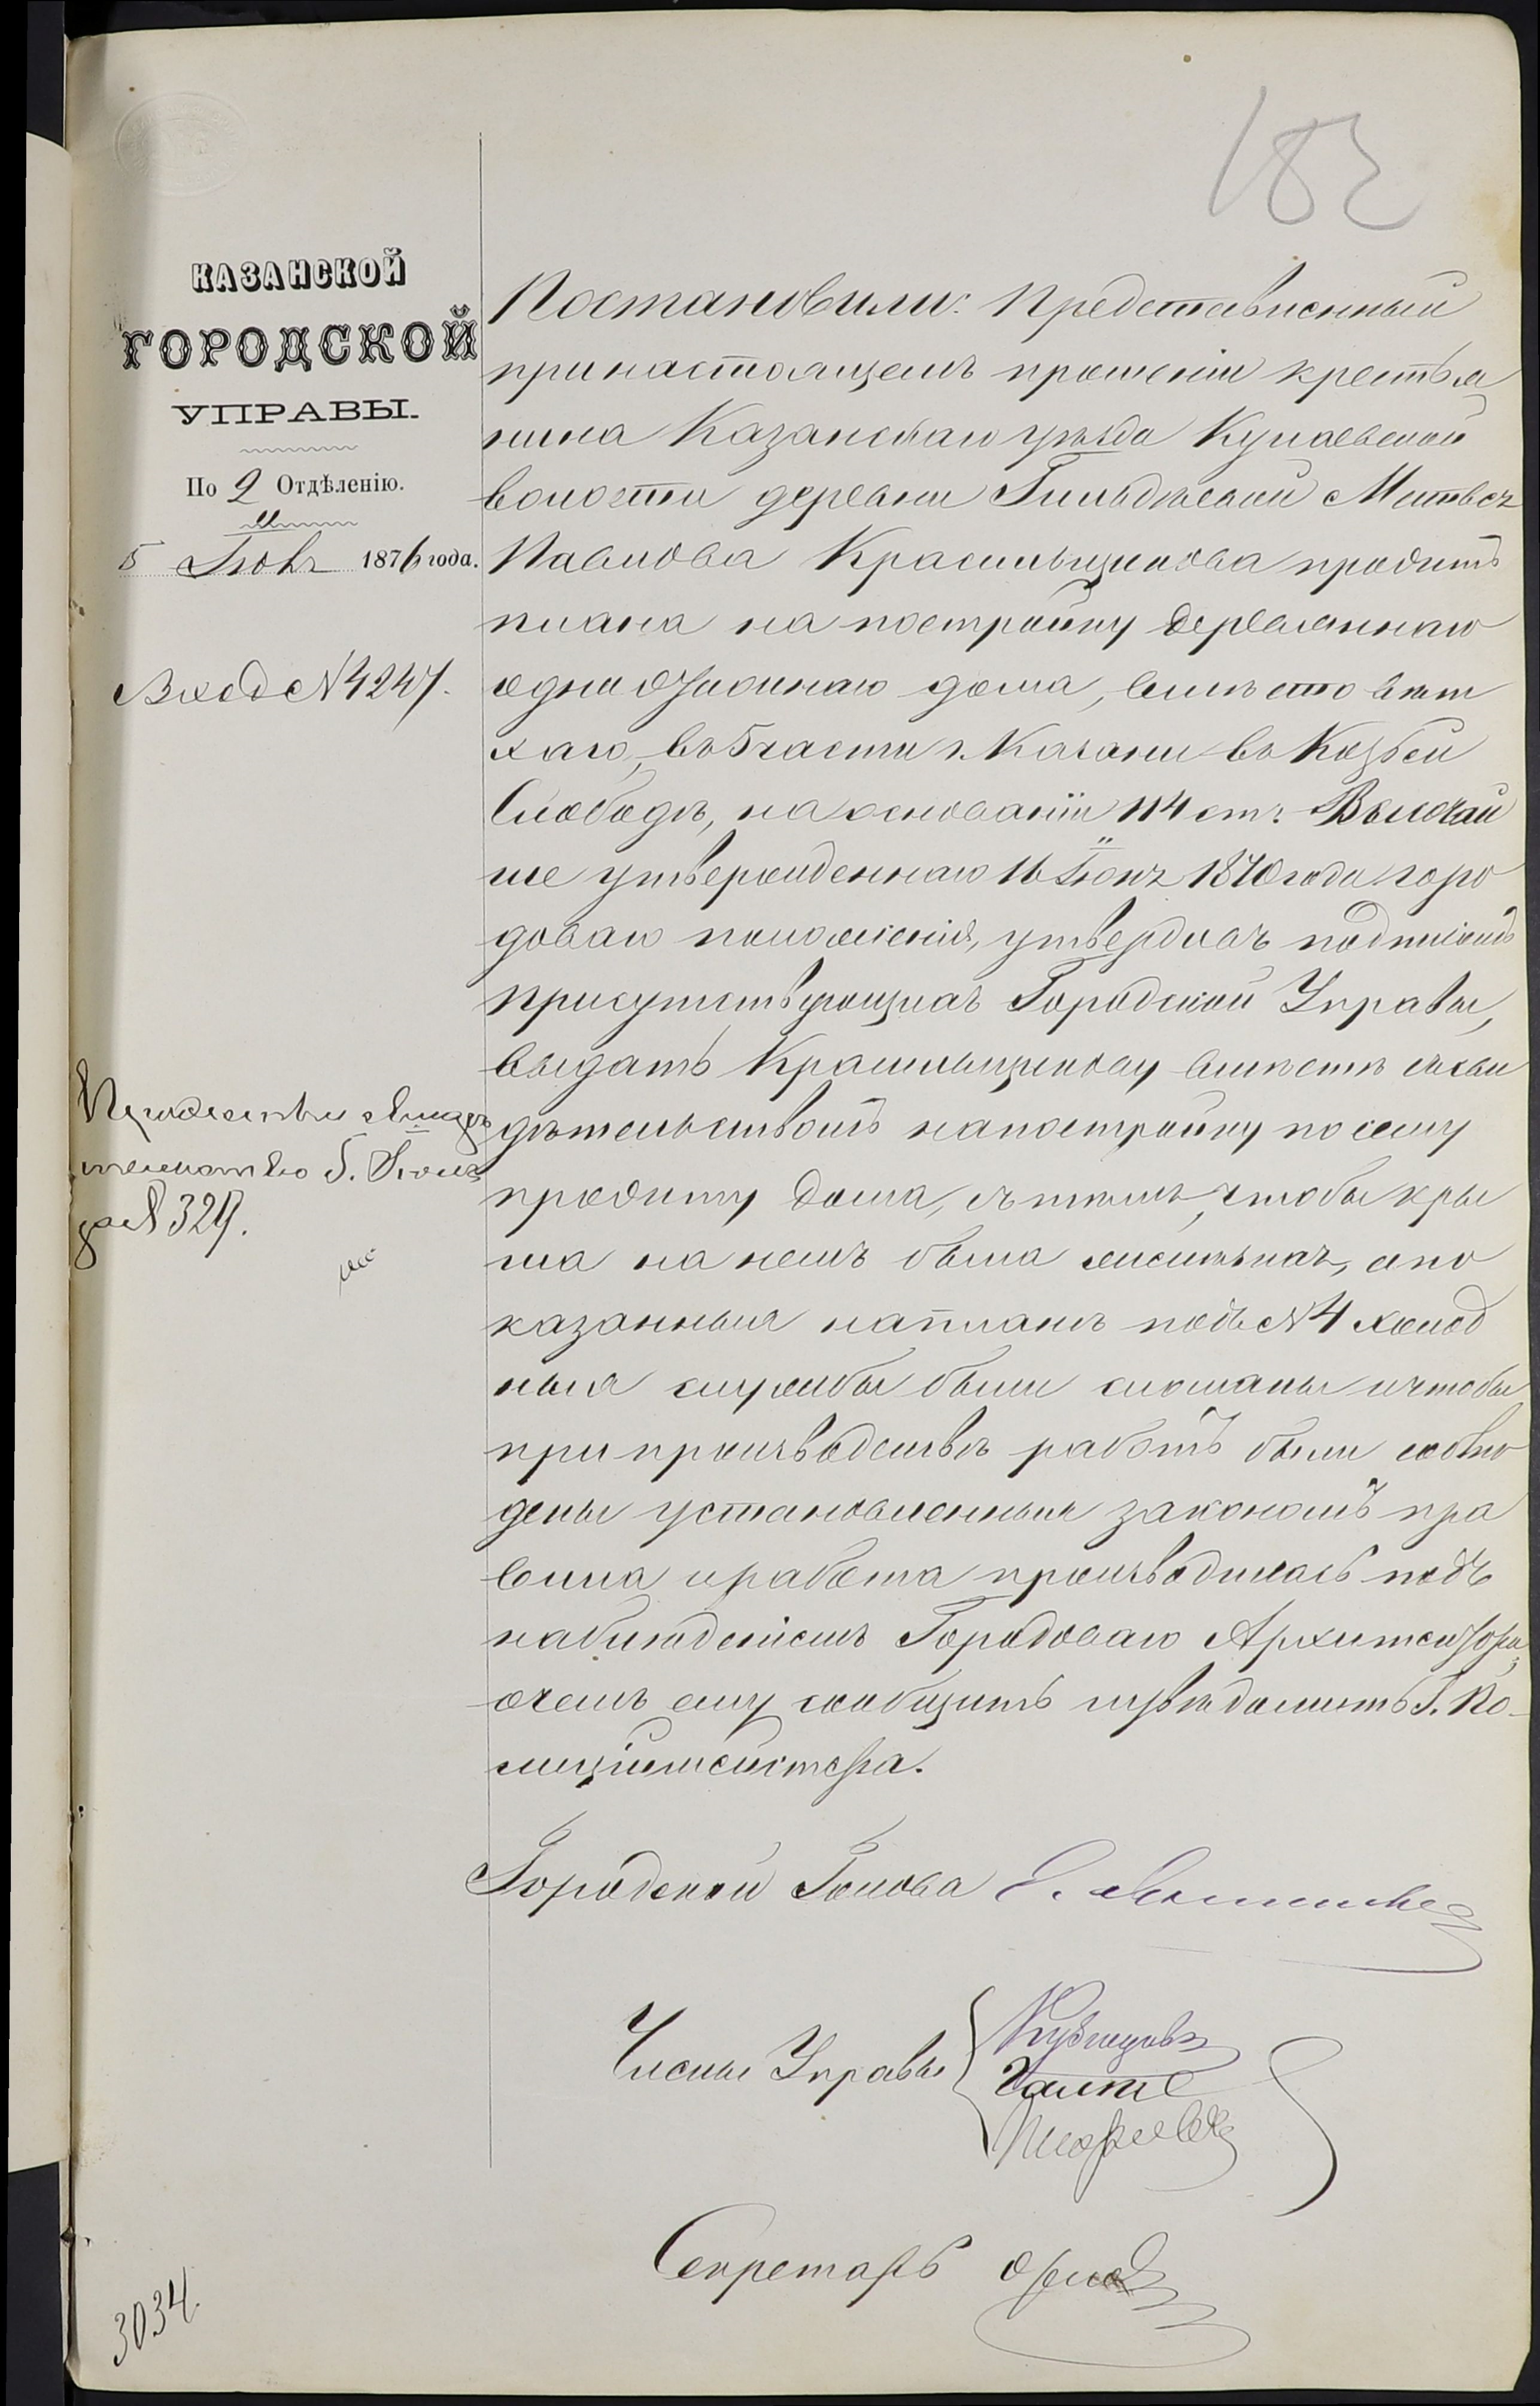 183
КАЗАНСКОЙ
ГОРОДСКОЙ
УПРАВЫ.
По 2 Отдѣленію.
5 Іюля 1876 года.
Вход № 4247.
Постановили: Представленный
при настоящемъ прошеніи крестья
нина Казанскаго уѣзда Кулаевской
волости деревни Гильдѣевой Матвея
Павлова Красильщикова проэктъ
плана на постройку деревяннаго
одно этажнаго дома, вмѣсто вет
хаго, въ 5 части г. Казани въ Козьей
Слободѣ, на основаніи 114 ст. Высочай
ше утвержденнаго 16 Іюня 1870 года горо
доваго положенія, утвердивъ подписомъ
присутствующихъ Городской Управы,
выдать Красильщикову вмѣстѣ съ сви
дѣтельствомъ на постройку по сему
проэкту дома, съ тѣмъ, чтобы кры
ша на немъ была желѣзная, а по
казанныя на планѣ подъ № 4 холод
ныя службы были сломаны и чтобы
при производствѣ работъ были соблю
дены установленныя закономъ пра
вила и работа производилась подъ
наблюденіемъ Городоваго Архитектора,
о чемъ ему сообщить и увѣдомить Г. По-
лиціймейстера.
свидѣ
тельство 5. Іюля
за № 329.
Городской Голова Е.
Члены Управы
Кузнецовъ
Секретарь
3034.